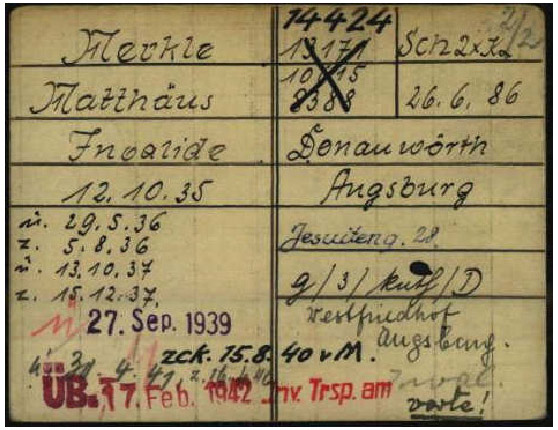 14424
2/2
Merkle
13171
Sch 2x K2
10815
Matthäus
8388
26. 6. 86
Invalide
Donauwörth
12. 10. 35
Augsburg
ü. 29. 5. 36
z. 5. 8. 36
Jesuiteng. 28.
ü. 13. 10. 37
z. 15. 12. 37.
g/3/kath/D
ü
27. Sep. 1939
Westfriedhof
Augsburg.
zck. 15. 8. 40 v M.
ü 4. 41.
Inval.
ÜB. 17. Feb. 1942 Inv. Trsp. am